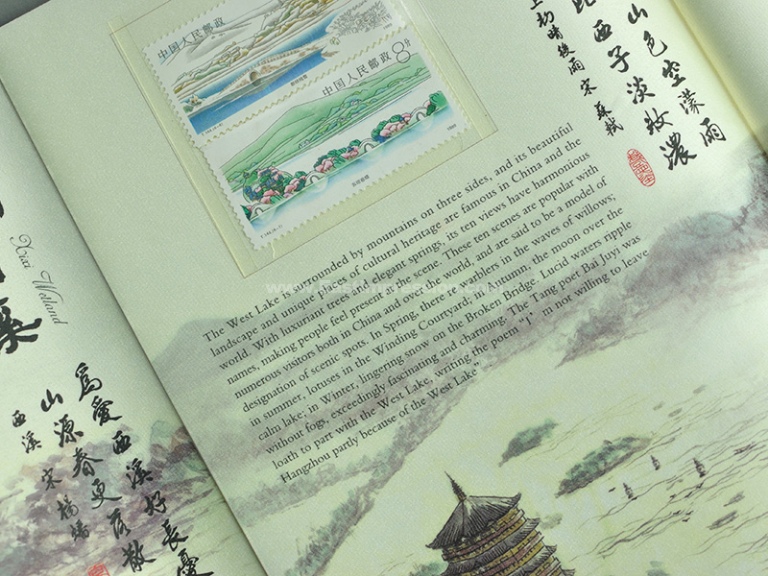 中国人民邮政
中国人民邮政
8分
山色空濛雨
西子淡妝濃
上初晴後雨 宋 蘇軾
The West Lake is surrounded by mountains on three sides, and its beautiful
landscape and unique pieces of cultural heritage are famous in China and the
world. With luxuriant trees and elegant springs, its ten views have harmonious
names, making people feel present at the scene. These ten scenes are popular with
numerous visitors both in China and over the world, and are said to be a model of
designation of scenic spots. In Spring, there re warblers in the waves of willows;
in summer, lotuses in the Winding Courtyard; in autumn, the moon over the
calm lake; in Winter, lingering snow on the Broken Bridge. Lucid waters ripple
without fogs, exceedingly fascinating and charming. The Tang poet Bai Juyi was
loath to part with the West Lake, writing the poem "I' m not willing to leave
Hangzhou partly because of the West Lake"
Xixi Wetland
為愛西溪好長憂
山源春更落散
西溪 宋 楊蟠